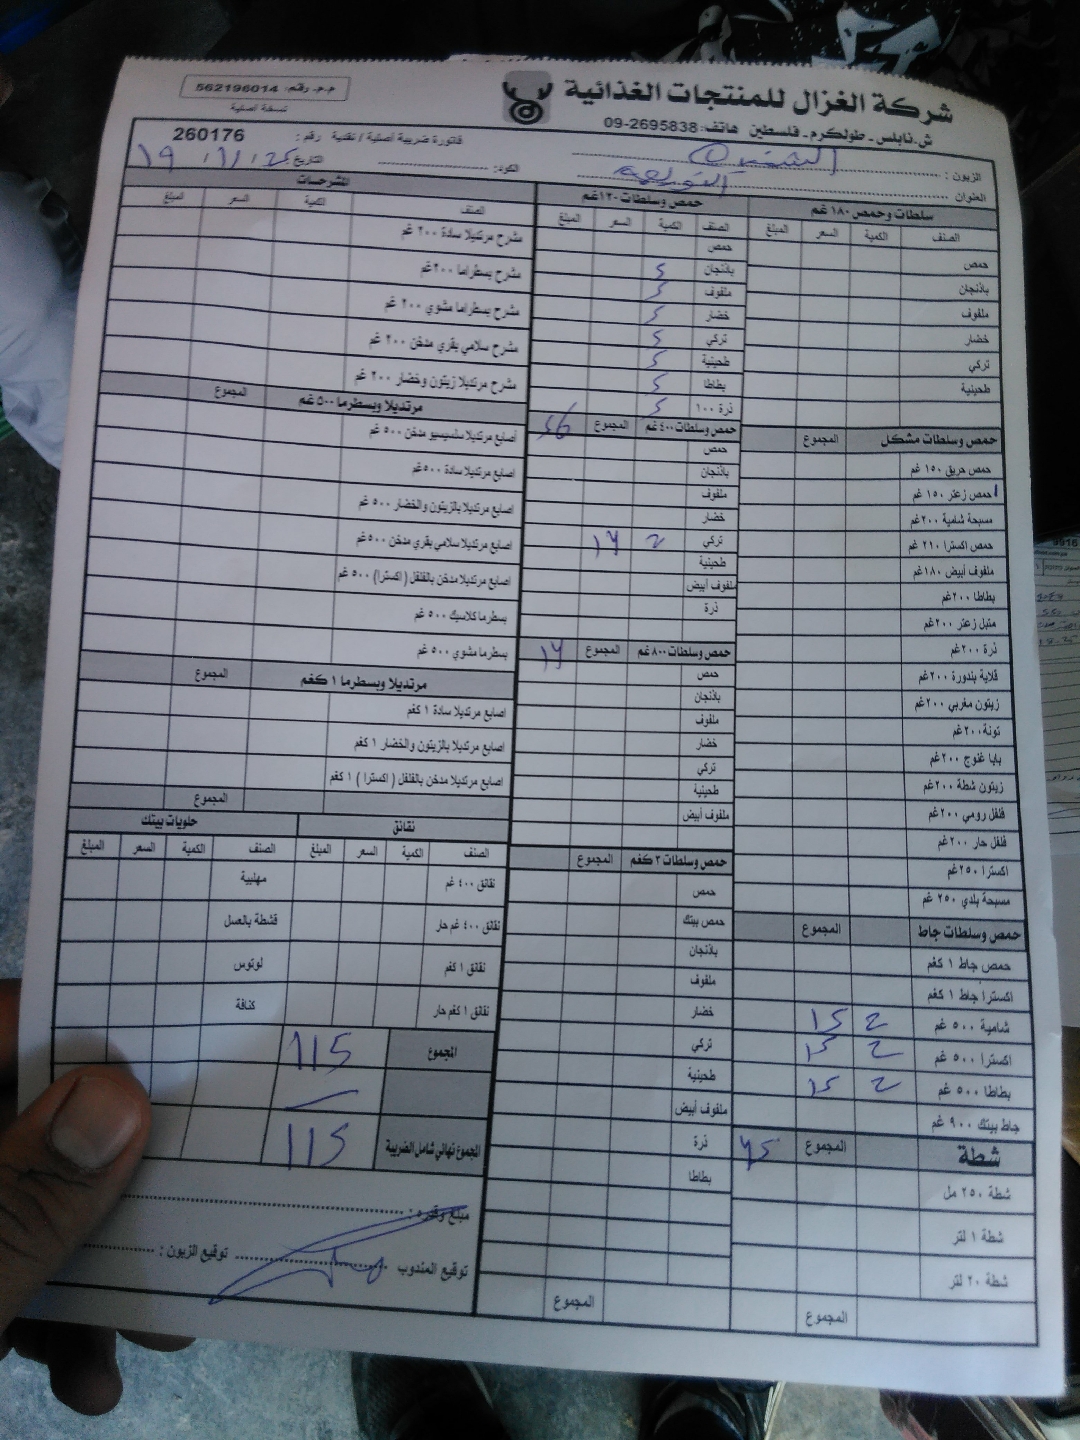 شركة الغزال للمنتجات الغذائية
ش.نابلس - طولكرم - فلسطين هاتف: 09-2695838
م.م. رقم: 562196014
نسخة أصلية
فاتورة ضريبية أصلية / نقدية رقم: 260176
الزبون:
العنوان
الكود:
التاريخ
سلطات وحمص ١٨٠ غم
الصنف الكمية السعر المبلغ
حمص
باذنجان
ملفوف
خضار
تركي
طحينية
حمص وسلطات مشكل المجموع
حمص حريق ١٥٠ غم
حمص زعتر ١٥٠ غم
مسبحة شامية ٢٠٠غم
حمص اكسترا ٢١٠ غم
ملفوف أبيض ١٨٠غم
بطاطا ٢٠٠غم
متبل زعتر ٢٠٠غم
ذرة ٢٠٠غم
قلاية بندورة ٢٠٠غم
زيتون مغربي ٢٠٠غم
تونة ٢٠٠غم
بابا غنوج ٢٠٠غم
زيتون شطة ٢٠٠غم
فلفل رومي ٢٠٠غم
فلفل حار ٢٠٠غم
اكسترا ٢٥٠غم
مسبحة بلدي ٢٥٠ غم
حمص وسلطات جاط المجموع
حمص جاط ١ كغم
اكسترا جاط ١ كغم
شامية ٥٠٠ غم 2
اكسترا ٥٠٠ غم 2
بطاطا ٥٠٠ غم 2
جاط بيتك ٩٠٠ غم
شطة المجموع
شطة ٢٥٠ مل
شطة ١ لتر
شطة ٢٠ لتر
المجموع
حمص وسلطات ١٢٠غم
الصنف الكمية السعر المبلغ
حمص
باذنجان
ملفوف
خضار
تركي
طحينية
بطاطا
ذرة ١٠٠
حمص وسلطات ٤٠٠غم المجموع
حمص
باذنجان
ملفوف
خضار
تركي 2
طحينية
ملفوف أبيض
ذرة
حمص وسلطات ٨٠٠غم المجموع
حمص
باذنجان
ملفوف
خضار
تركي
طحينية
ملفوف أبيض
حمص وسلطات ٣كغم المجموع
حمص
حمص بيتك
باذنجان
ملفوف
خضار
تركي
طحينية
ملفوف أبيض
ذرة
بطاطا
المجموع
المشرحات
الصنف الكمية السعر المبلغ
مشرح مرتديلا سادة ٢٠٠ غم
مشرح بسطراما ٢٠٠غم
مشرح بسطراما مشوي ٢٠٠ غم
مشرح سلامي بقري مدخن ٢٠٠ غم
مشرح مرتديلا زيتون وخضار ٢٠٠ غم
مرتديلا وبسطرما ٥٠٠غم المجموع
أصابع مرتديلا سلسيسيو مدخن ٥٠٠ غم
اصابع مرتديلا سادة ٥٠٠غم
اصابع مرتديلا بالزيتون والخضار ٥٠٠ غم
اصابع مرتديلا سلامي بقري مدخن ٥٠٠غم
اصابع مرتديلا مدخن بالفلفل (اكسترا) ٥٠٠ غم
بسطرما كلاسيك ٥٠٠ غم
بسطرما مشوي ٥٠٠ غم
مرتديلا وبسطرما ١ كغم المجموع
اصابع مرتديلا سادة ١ كغم
اصابع مرتديلا بالزيتون والخضار ١ كغم
اصابع مرتديلا مدخن بالفلفل (اكسترا) ١ كغم
المجموع
نقانق حلويات بيتك
الصنف الكمية السعر المبلغ الصنف الكمية السعر المبلغ
نقانق ٤٠٠ غم مهلبية
نقانق ٤٠٠ غم حار قشطة بالعسل
نقانق ١ كغم لوتوس
نقانق ١ كغم حار كنافة
المجموع 115
المجموع نهائي شامل الضريبة 115
مبلغ وقدره:
توقيع المندوب توقيع الزبون: